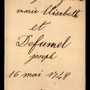 marie Elizabeth
et
Dufumel
joseph
16 mai 1748